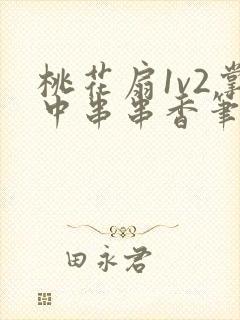 桃花扇1v2掌
中串串香筆
田永君